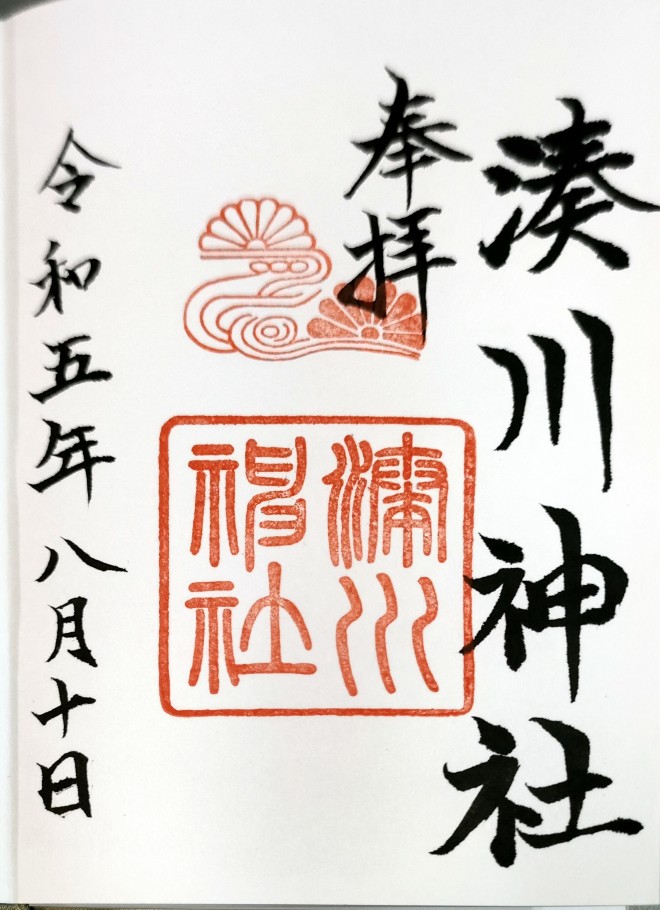 湊川神社
奉拝
湊川
神社
令和五年八月十日